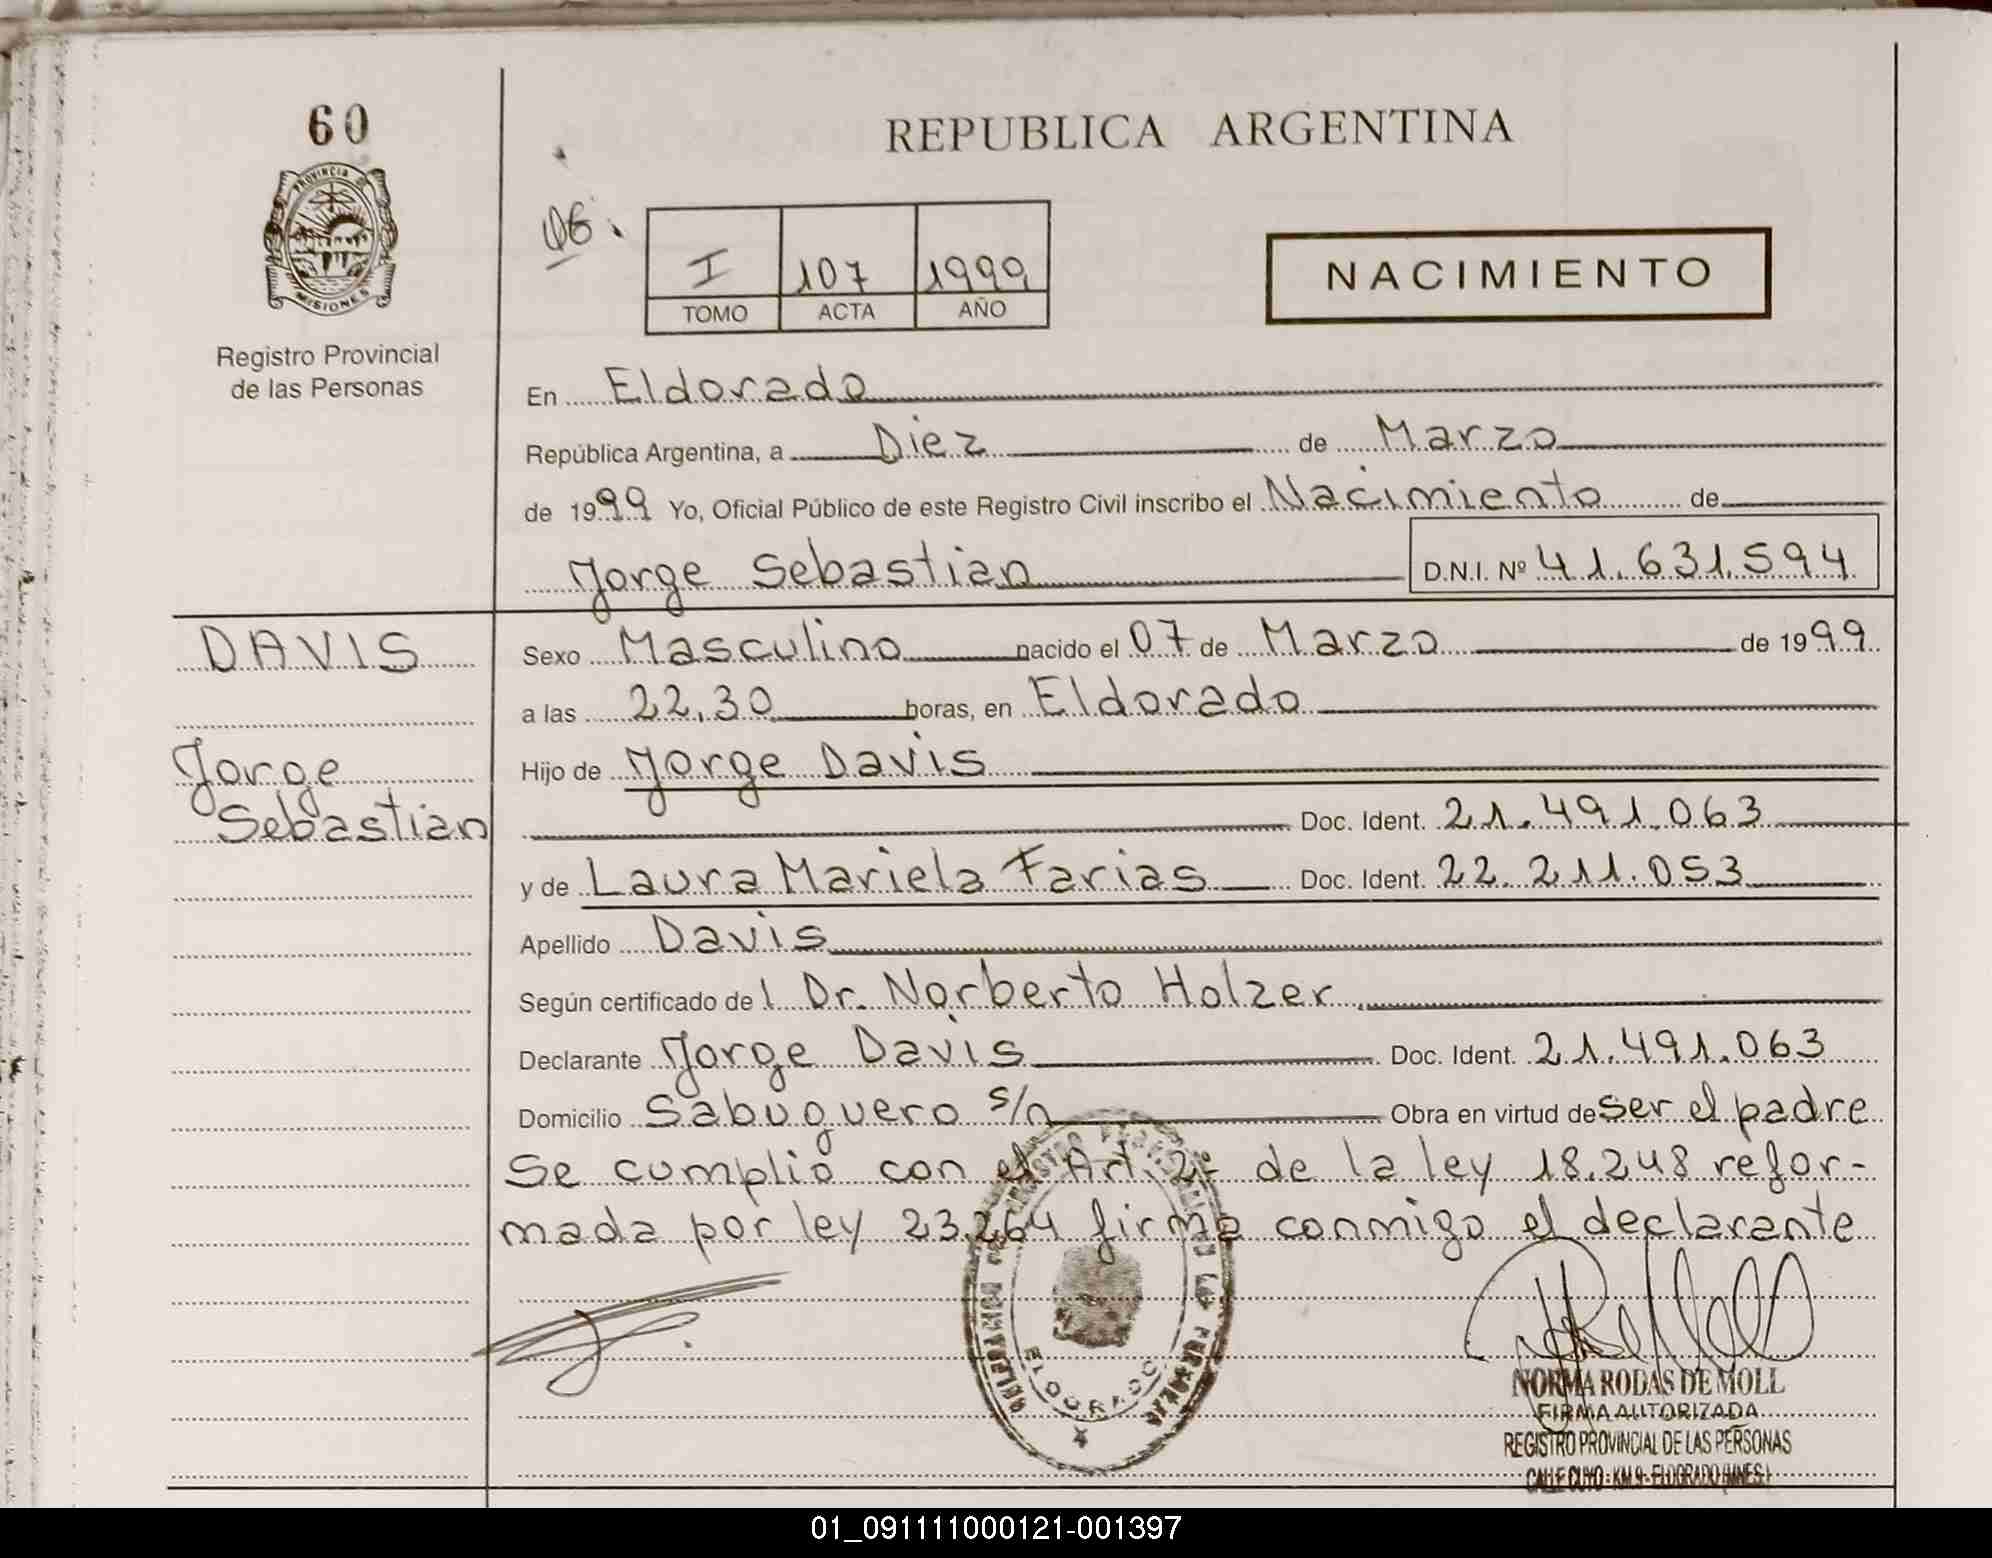 60
PROVINCIA DE
MISIONES
Registro Provincial
de las Personas
REPUBLICA ARGENTINA
I 107 1999
TOMO ACTA AÑO
NACIMIENTO
En Eldorado
República Argentina, a Diez de Marzo
de 1999 Yo, Oficial Público de este Registro Civil inscribo el Nacimiento de
Jorge Sebastian D.N.I. Nº 41.631.594
DAVIS
Jorge
Sebastian
Sexo Masculino nacido el 07 de Marzo de 1999
a las 22,30 horas, en Eldorado
Hijo de Jorge Davis
Doc. Ident. 21.491.063
y de Laura Mariela Farias Doc. Ident. 22.211.053
Apellido Davis
Según certificado del Dr. Norberto Holzer
Declarante Jorge Davis Doc. Ident. 21.491.063
Domicilio Sabuguero s/n Obra en virtud de ser el padre
Se cumplió con el Art. 2º de la ley 18.248 refor-
mada por ley 23.264 firma conmigo el declarante
ELDORADO
NORMA RODAS DE MOLL
FIRMA AUTORIZADA
REGISTRO PROVINCIAL DE LAS PERSONAS
CALLE CUYO - KM. 9 - ELDORADO (MNES.)
01_091111000121-001397